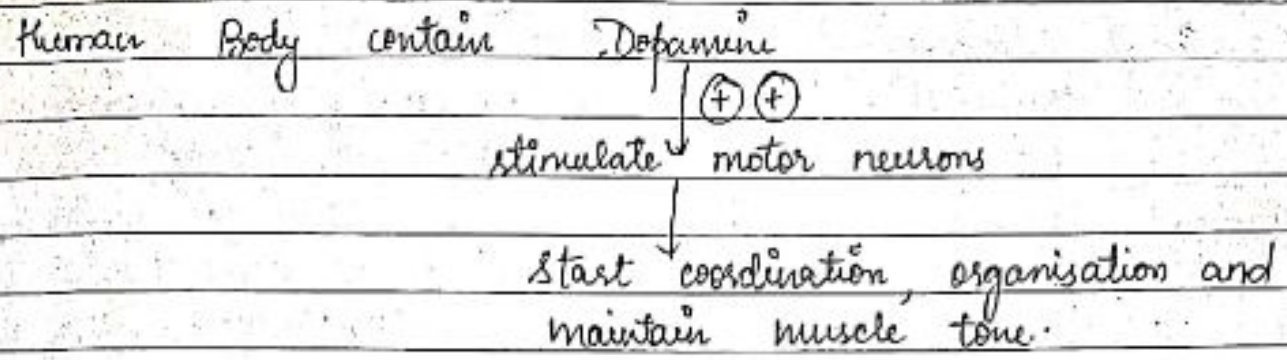 Human Body contain Dopamine
↓ ⊕ ⊕
stimulate motor neurons
↓
Start coordination, organisation and
maintain muscle tone.